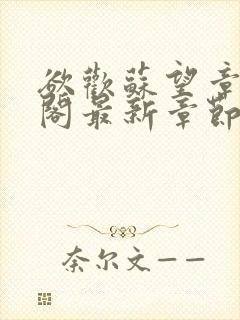 欲歡蘇望章
閣最新章節
奈尔文——